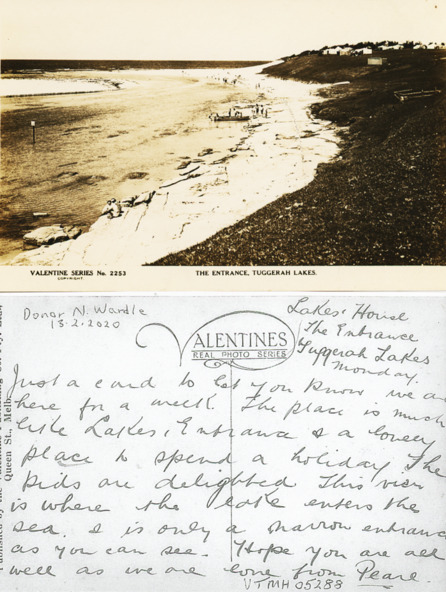 VALENTINE SERIES No. 2253
COPYRIGHT
THE ENTRANCE, TUGGERAH LAKES.
Donor N. Wardle
13.2.2020
VALENTINES
REAL PHOTO SERIES
Lakes' House
The Entrance
Tuggerah Lakes
Monday.
Just a card to let you know we are
here for a week. The place is much
like Lakes' Entrance & a lovely
place to spend a holiday. The
kids are delighted. This view
is where the lake enters the
sea. & is only a narrow entrance
as you can see. Hope you are all
well as we are love from Pearl.
VTMH 05288
Queen St., Melb.